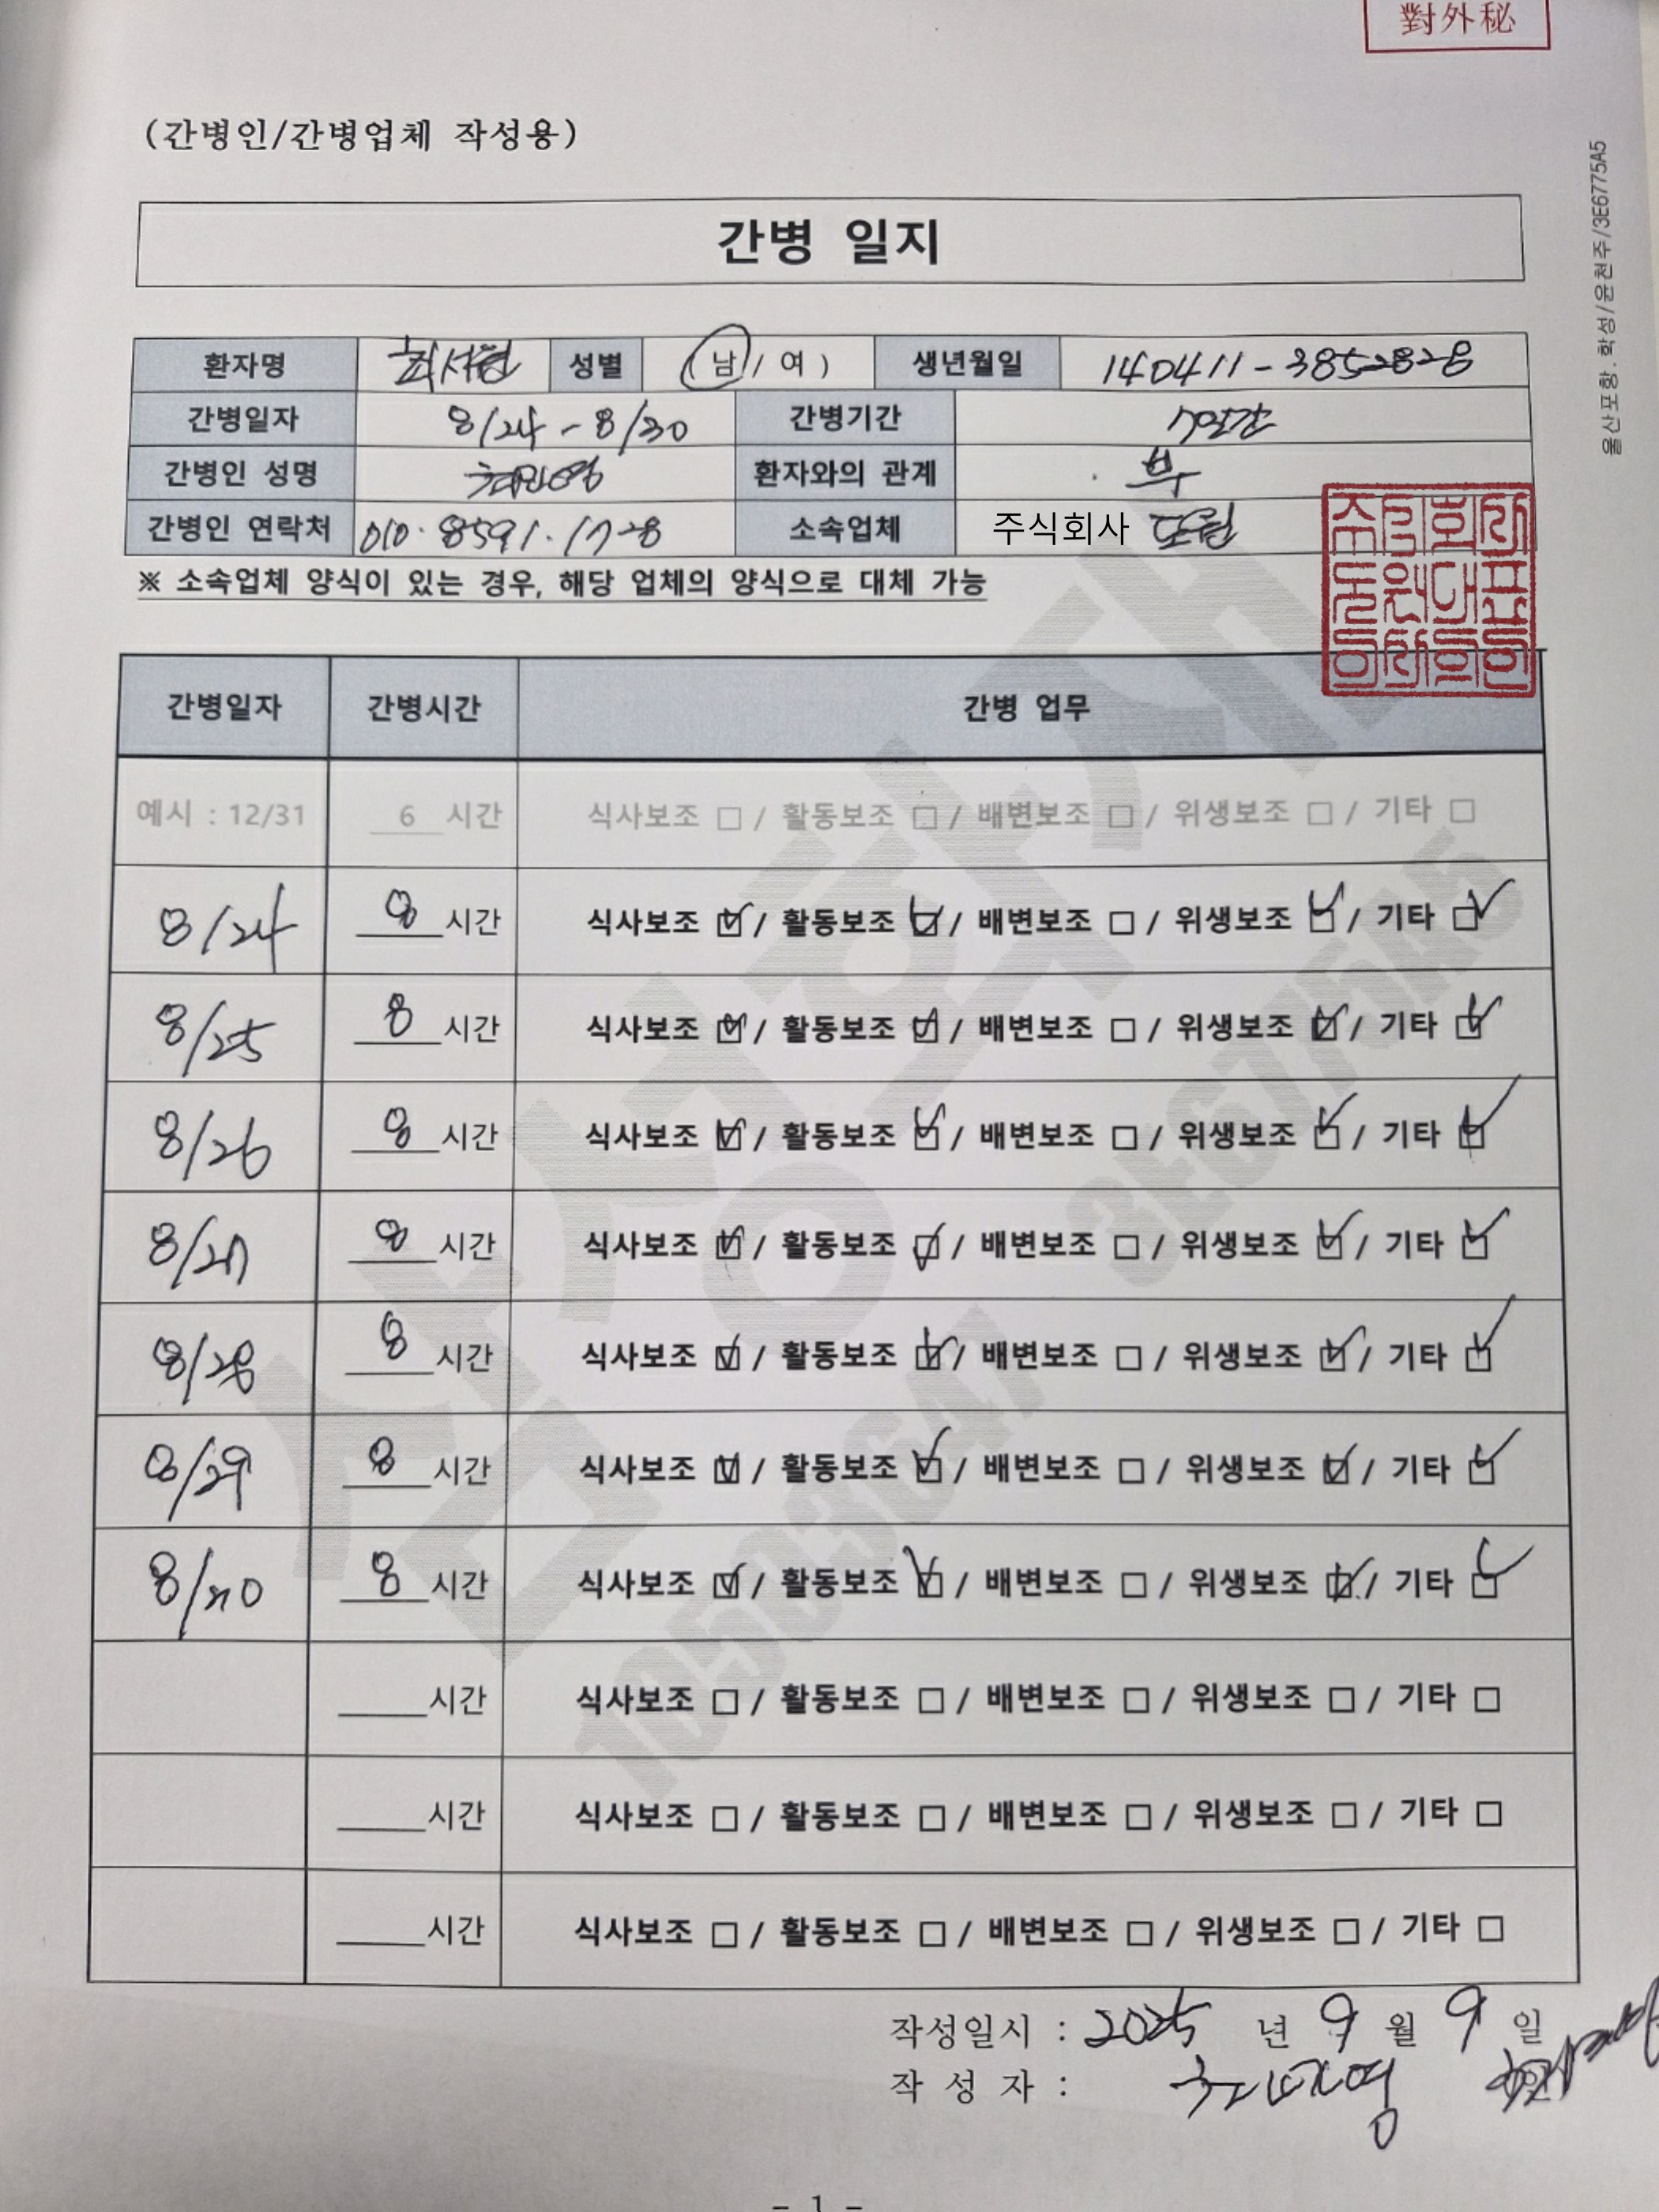 對外秘
(간병인/간병업체 작성용)
울산포항.학성/윤천주/3E6775A5
간병 일지
환자명 최서현 성별 (남/여) 생년월일 140411-3852828
간병일자 8/24-8/30 간병기간 7일간
간병인 성명 환자와의 관계 부
간병인 연락처 010.8591.1728 소속업체 주식회사
※ 소속업체 양식이 있는 경우, 해당 업체의 양식으로 대체 가능
간병일자 간병시간 간병 업무
예시 : 12/31 6 시간 식사보조 □ / 활동보조 □ / 배변보조 □ / 위생보조 □ / 기타 □
8/24 8 시간 식사보조 ☑ / 활동보조 ☑ / 배변보조 □ / 위생보조 ☑ / 기타 ☑
8/25 8 시간 식사보조 ☑ / 활동보조 ☑ / 배변보조 □ / 위생보조 ☑ / 기타 ☑
8/26 8 시간 식사보조 ☑ / 활동보조 ☑ / 배변보조 □ / 위생보조 ☑ / 기타 ☑
8/27 8 시간 식사보조 ☑ / 활동보조 ☑ / 배변보조 □ / 위생보조 ☑ / 기타 ☑
8/28 8 시간 식사보조 ☑ / 활동보조 ☑ / 배변보조 □ / 위생보조 ☑ / 기타 ☑
8/29 8 시간 식사보조 ☑ / 활동보조 ☑ / 배변보조 □ / 위생보조 ☑ / 기타 ☑
8/30 8 시간 식사보조 ☑ / 활동보조 ☑ / 배변보조 □ / 위생보조 ☑ / 기타 ☑
시간 식사보조 □ / 활동보조 □ / 배변보조 □ / 위생보조 □ / 기타 □
시간 식사보조 □ / 활동보조 □ / 배변보조 □ / 위생보조 □ / 기타 □
시간 식사보조 □ / 활동보조 □ / 배변보조 □ / 위생보조 □ / 기타 □
삼성화재
10503647 3E6775A5
작성일시 : 2025 년 9 월 9 일
작 성 자 :
- 1 -